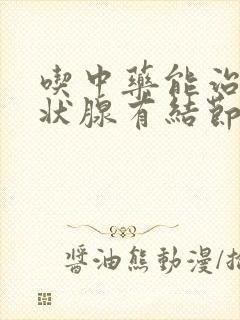 喫中藥能治
狀腺有結節
醬油熊動漫/插